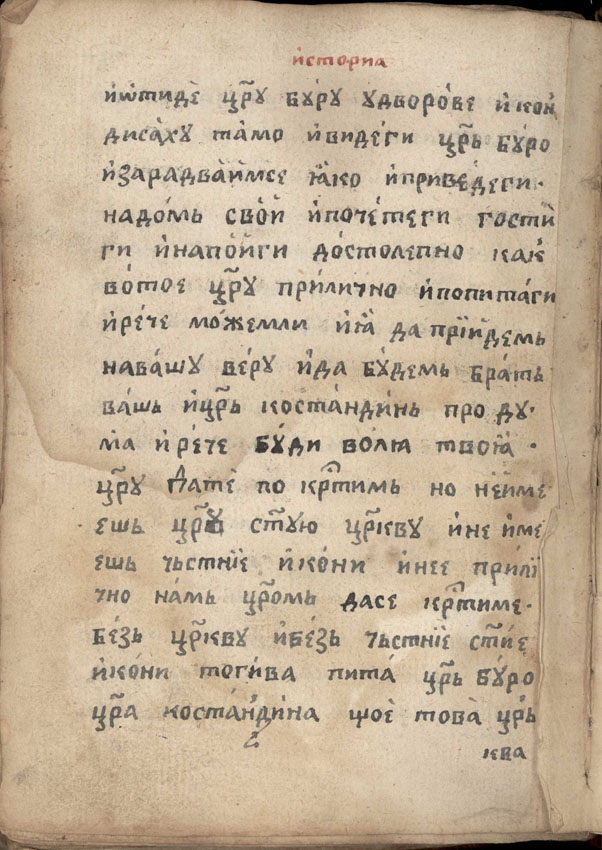 история
ѝѿтидѐ цр҃ꙋ бꙋ́рꙋ ꙋдворо́ве ѝкон
дисах̀ꙋ та́мо ѝвидеги цр҃ь бꙋ́ро
ѝзарадва̀ѝмсе ꙗ҆ко ѝприве́деги·
надо́мь сво́й ѝпоче́теги гости̇̀
ги ѝнапо́йги до́столепно как̀
во́тое цр҃ꙋ при́лично ѝпопита́ги
ѝре́че мо́жемли ѝꙗ̀ да прїйдемь
нава́шꙋ ве́рꙋ ѝда бꙋ́демь бра́ть
ва́шь ѝцр҃ь коста́нди́нь про дꙋ·
ма̀ ѝре́че бꙋ́ди во́лꙗ твоꙗ̀ ·
цр҃ꙋ Дате̇̀ по кр҃тимь но не́име
ешь цр҃кꙋ ст҃ꙋю цр҃квꙋ ѝне и҆ме
ешь чьстнїе ѝко́ни ѝнее прилї
чно на́мь цр҃омь да́се кр҃тиме·
бе́зь цр҃квꙋ ѝбе́зь чьстнїе ст҃и́е
ѝко́ни тоги́ва пита́ цр҃ь бꙋ́ро
цр҃а коста́нди́на що̀е това̀ цр҃ь
ква